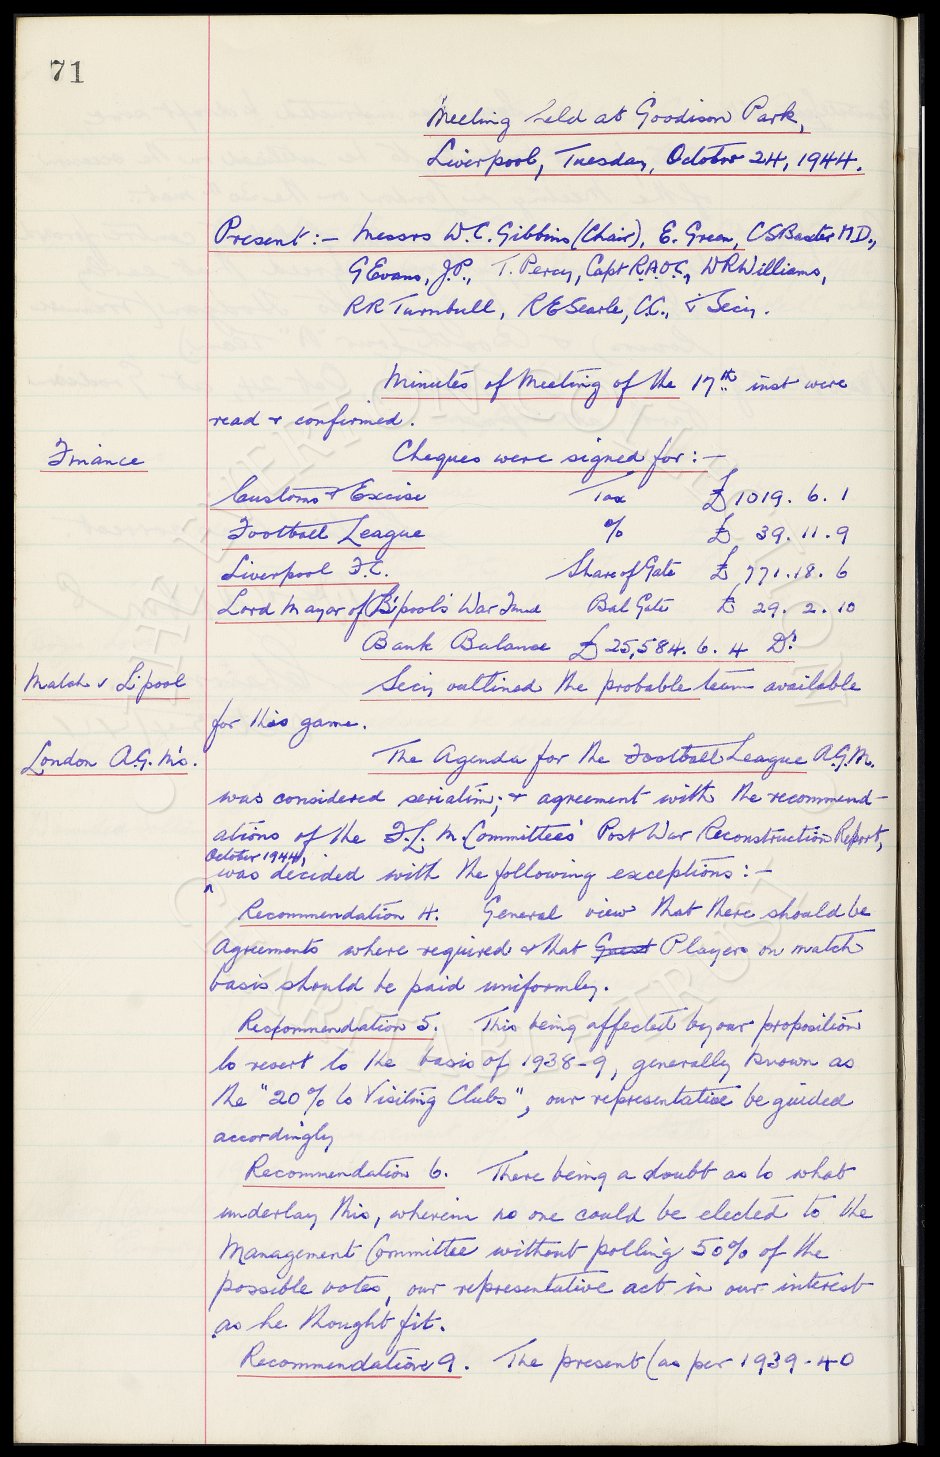 71
Meeting held at Goodison Park,
Liverpool, Tuesday, October 24, 1944.
Present:- Messrs W.C. Gibbins (Chair), E. Green, C S Baxter M.D.,
G Evans, J.P., T. Percy, Capt R.A.O.C., W R Williams,
R R Turnbull, R E Searle, C.C., & Secy.
Minutes of Meeting of the 17th inst were
read & confirmed.
Finance
Cheques were signed for:-
Customs & Excise Tax £1019. 6. 1
Football League % £ 39. 11. 9
Liverpool F.C. Share of Gate £ 771. 18. 6
Lord Mayor of L'pool's War Fund Bal Gate £ 29. 2. 10
Bank Balance £25,584. 6. 4 Dr
Match v L'pool
Secy outlined the probable team available
for this game.
London A.G.M's.
The Agenda for the Football League A.G.M.
was considered seriatim; & agreement with the recommend-
ations of the F.L. M. Committees' Post War Reconstruction Report,
October 1944,
was decided with the following exceptions:-
Recommendation 4. General view that there should be
Agreements where required & that Guest Players on match
basis should be paid uniformly.
Recommendation 5. This being affected by our proposition
to revert to the basis of 1938-9, generally known as
the "20% to Visiting Clubs", our representative be guided
accordingly
Recommendation 6. There being a doubt as to what
underlay this, wherein no one could be elected to the
Management Committee without polling 50% of the
possible votes, our representative act in our interest
as he thought fit.
Recommendation 9. The present (as per 1939-40